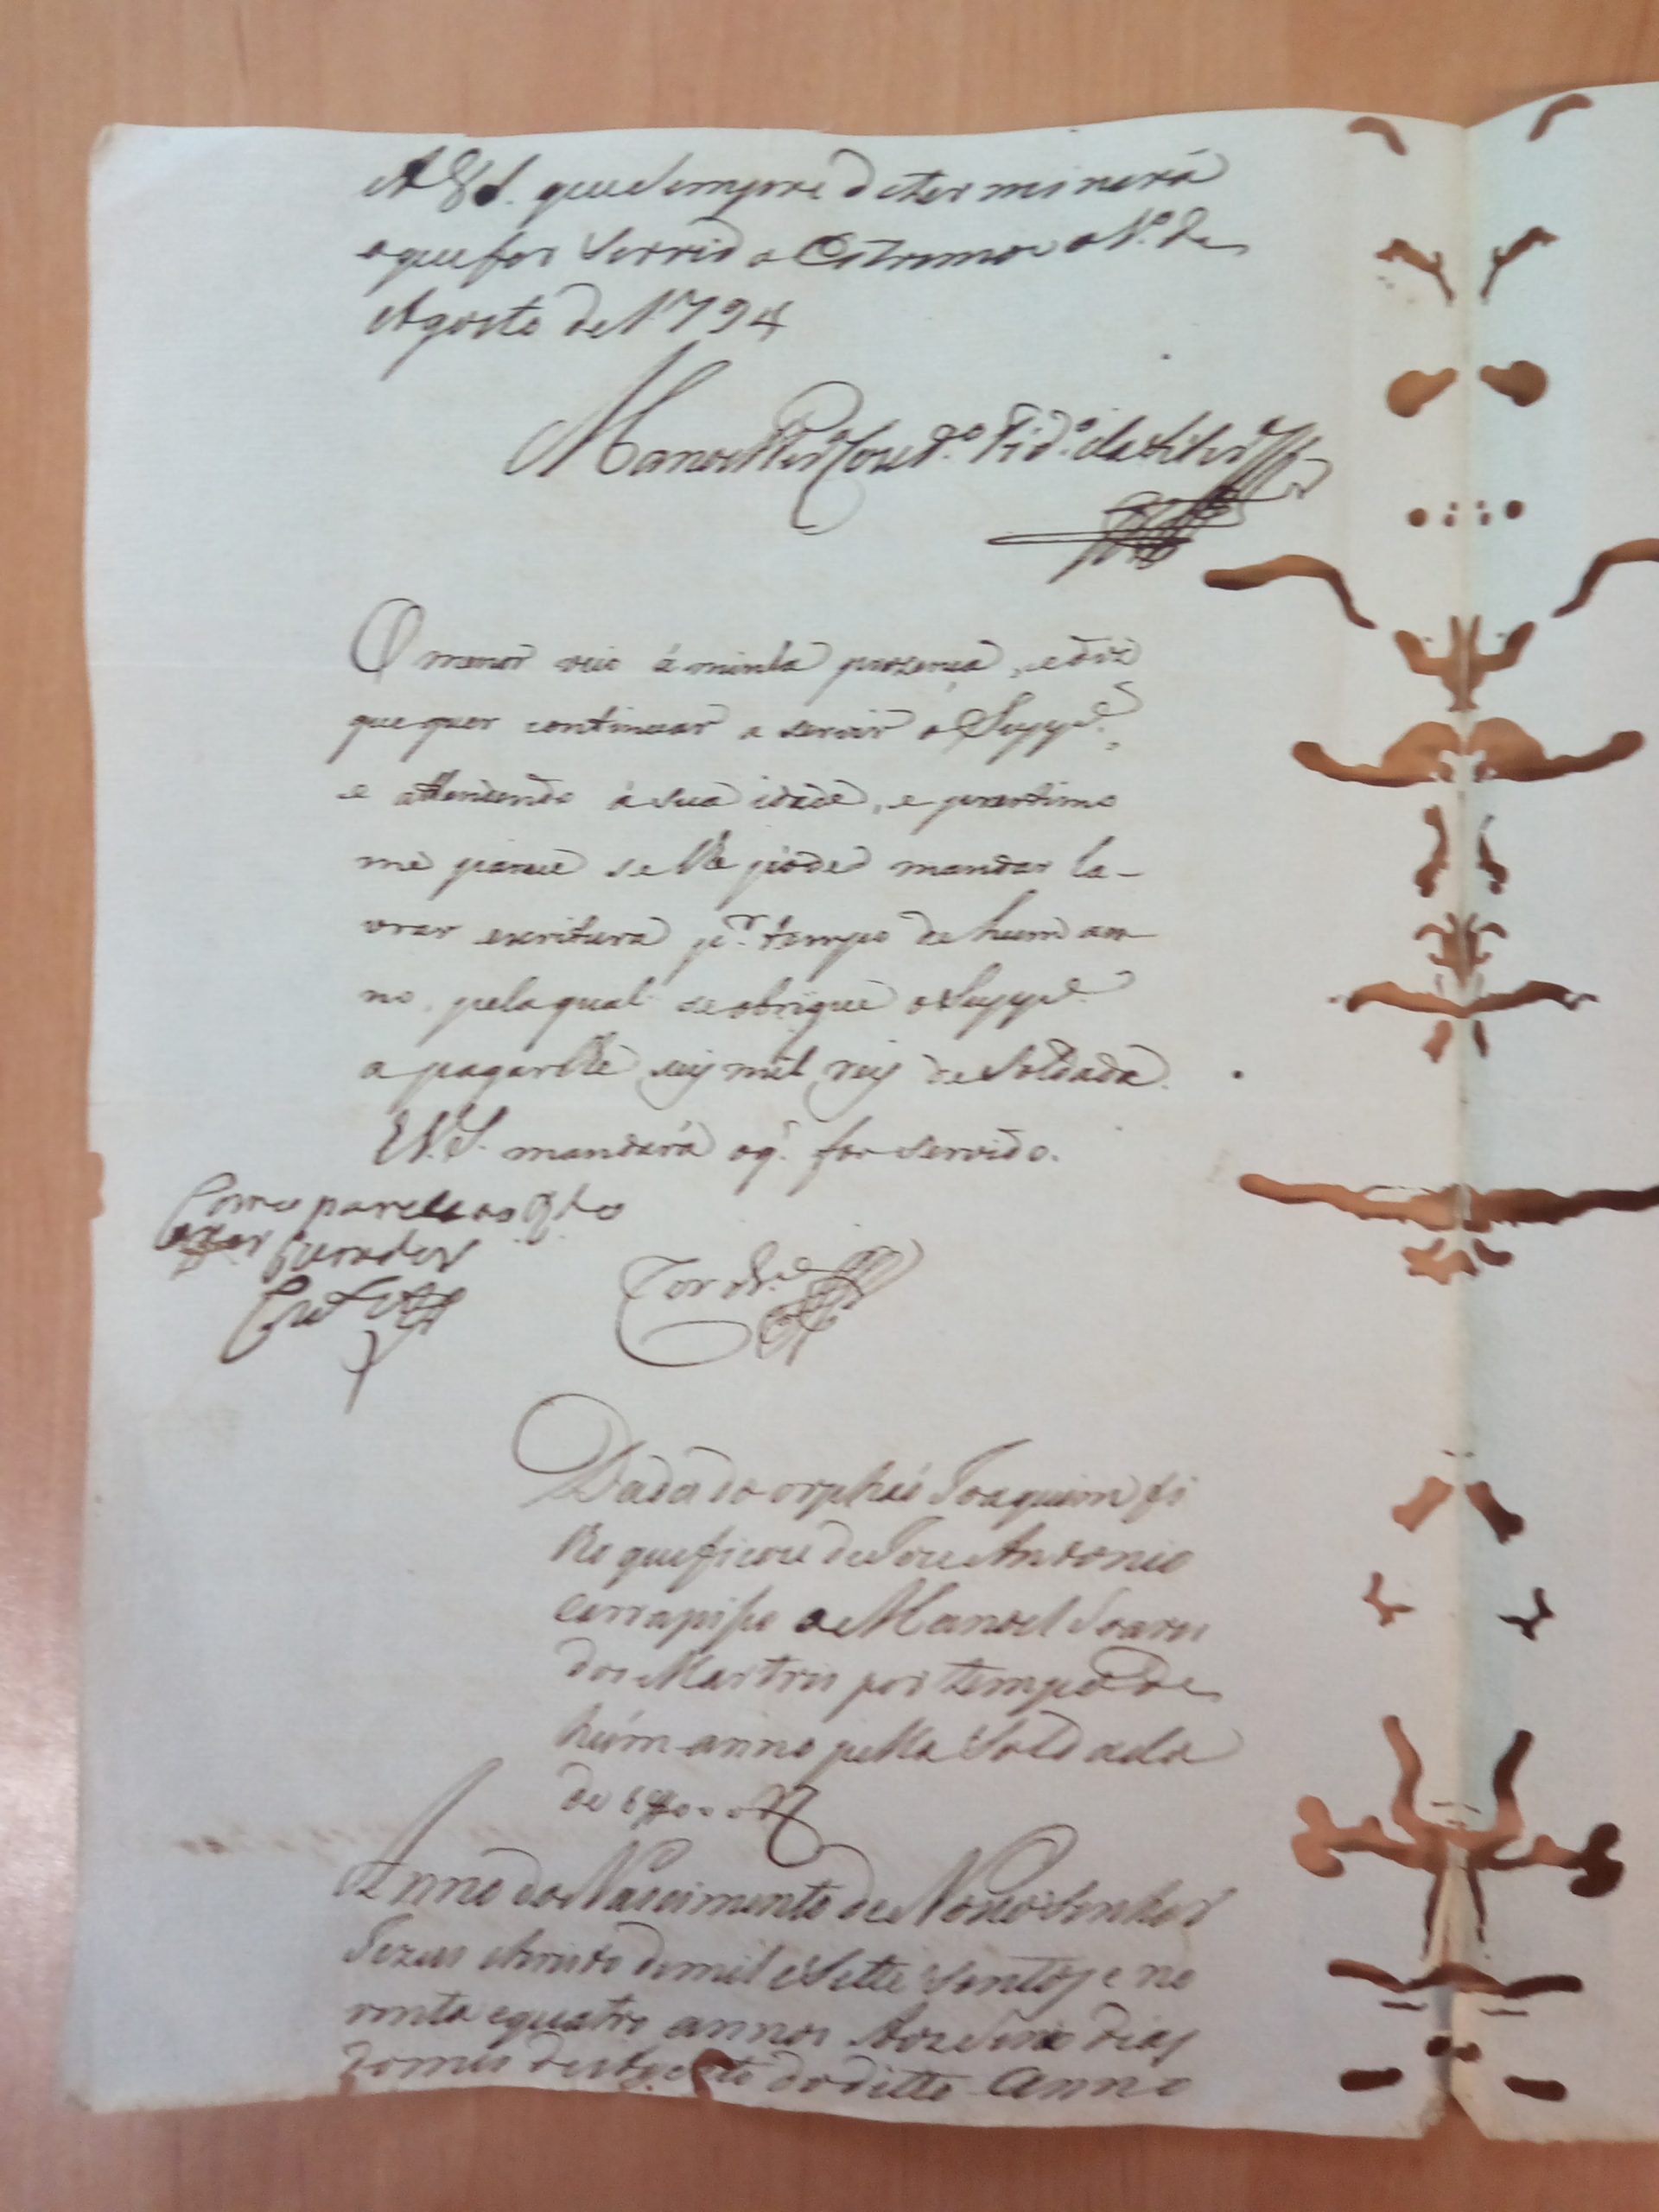 AVS. que sempre determinará
o que for servido Estremoz o 1º. de
Agosto de 1794
Manoel
O menor veio á minha prezença, e diz
que quer continuar a servir o Suppe.,
e attendendo á sua idade, e prestimo
me parece se lhe póde mandar la-
vrar escritura pr. tempo de hum an-
no, pela qual se obrigue o Suppe.
a pagarlhe seis mil reis de Soldada.
V.S. mandará o q. for servido.
Como parece ao
Curador
Dada do orphaõ Joaquim fi
lho que ficou de Joze Antonio
Carrapiso a Manoel Soares
dos Martires por tempo de
húm anno pella Soldada
de 6$000 rs
Anno do Nascimento de Nosso Senhor
Jezus Christo de mil e Sette Sentos e no
venta e quatro annos Aos Seis dias
do mes de Agosto do ditto anno